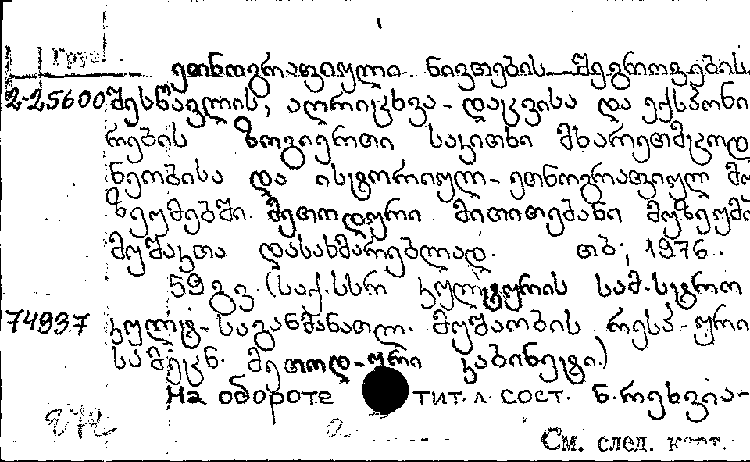 Груз.
ეთნოგრაფიული ნივთების შეგროვების,
2-25600 შესწავლის, აღრიცხვა-დაცვისა და ექსპონი
რების ზოგიერთი საკითხი მხარეთმცოდ
ნეობისა და ისტორიულ-ეთნოგრაფიულ მუ
ზეუმებში. მეთოდური მითითებანი მუზეუმის
მუშაკთა დასახმარებლად. თბ., 1976.
59 გვ. (საქ. სსრ კულტურის სამ-სტრო
74937 კულტ-საგანმანათლ. მუშაობის რესპ-ური
სამეცნ. მეთოდ-ური კაბინეტი.)
На обороте тит. л. сост. ნ. რეხვია-
См. след. карт.